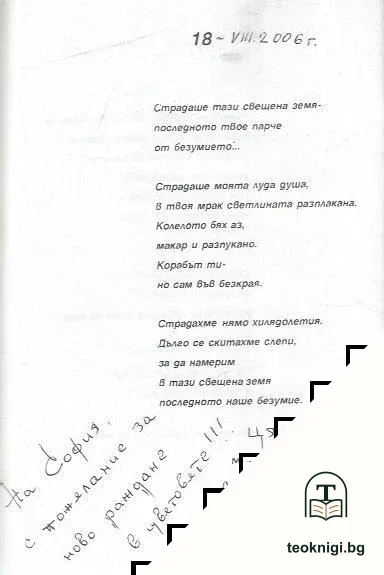 18 - VIII. 2006 г.
Страдаше тази свещена земя-
последното твое парче
от безумието...
Страдаше моята луда душа,
в твоя мрак светлината разплакана.
Колелото бях аз,
макар и разпукано.
Корабът ти-
но сам във безкрая.
Страдахме нямо хилядолетия.
Дълго се скитахме слепи,
за да намерим
в тази свещена земя
последното наше безумие.
На София,
с пожелание за
ново раждане
в цветовете!!!
T
teoknigi.bg